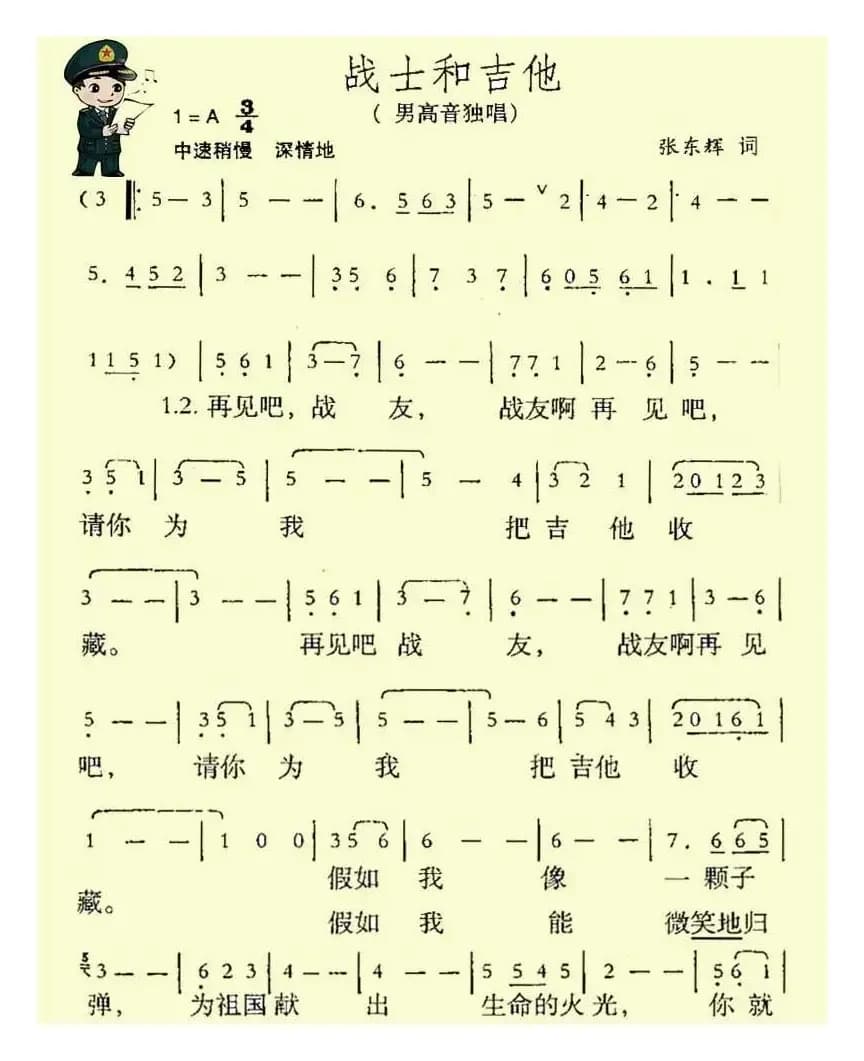 战士和吉他
（ 男高音独唱）
1 = A 3/4
中速稍慢 深情地
张东辉 词
(3 ‖: 5 — 3 | 5 — — | 6. 5 6 3 | 5 — ∨ 2 | 4 — 2 | 4 — —
5. 4 5 2 | 3 — — | 3 5 6 | 7 3 7 | 6 0 5 6 1 | 1 . 1 1
1 1 5 1) | 5 6 1 | 3 — 7 | 6 — — | 7 7 1 | 2 — 6 | 5 — —
1.2. 再见吧，战 友， 战友啊 再 见 吧，
3 5 1 | 3 — 5 | 5 — — | 5 — 4 | 3 2 1 | 2 0 1 2 3
请你 为 我 把 吉 他 收
3 — — | 3 — — | 5 6 1 | 3 — 7 | 6 — — | 7 7 1 | 3 — 6
藏。 再见吧 战 友， 战友啊再 见
5 — — | 3 5 1 | 3 — 5 | 5 — — | 5 — 6 | 5 4 3 | 2 0 1 6 1 |
吧， 请你 为 我 把 吉他 收
1 — — | 1 0 0 | 3 5 6 | 6 — — | 6 — — | 7. 6 6 5 |
藏。
假如 我 像 一 颗子
假如 我 能 微笑地归
5 3 — — | 6 2 3 | 4 — — | 4 — — | 5 5 4 5 | 2 — — | 5 6 1 |
弹， 为祖国 献 出 生命的火 光， 你 就